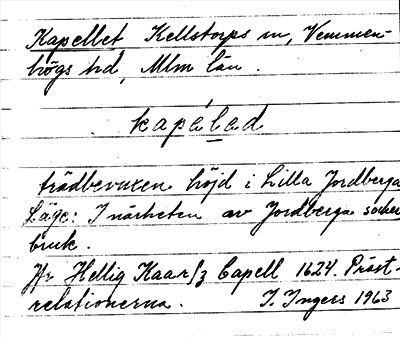 Kapellet Kellstorps sn, Vemmen-
högs hd, Mlm län.
kapǽled
trädbevuxen höjd i Lilla Jordberga
Läge: I närheten av Jordberga socker
bruk.
Jfr Hellig Kaarsz Capell 1624. Präst-
relationerna. I. Ingers 1963